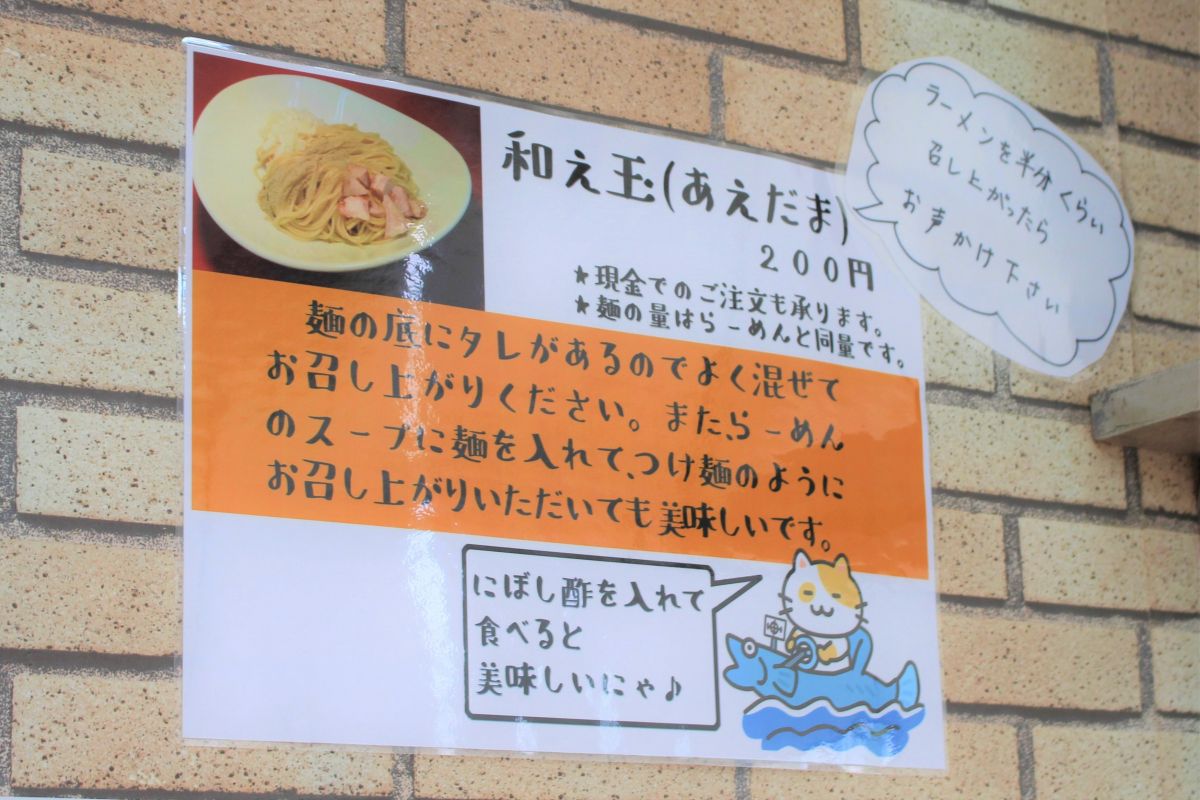 和え玉(あえだま)
200円
★現金でのご注文も承ります。
★麺の量はらーめんと同量です。
麺の底にタレがあるのでよく混ぜて
お召し上がりください。また、らーめん
のスープに麺を入れて、つけ麺のように
お召し上がりいただいても美味しいです。
にぼし酢を入れて
食べると
美味しいにゃ♪
ラーメンを半分くらい
召し上がったら
お声かけ下さい